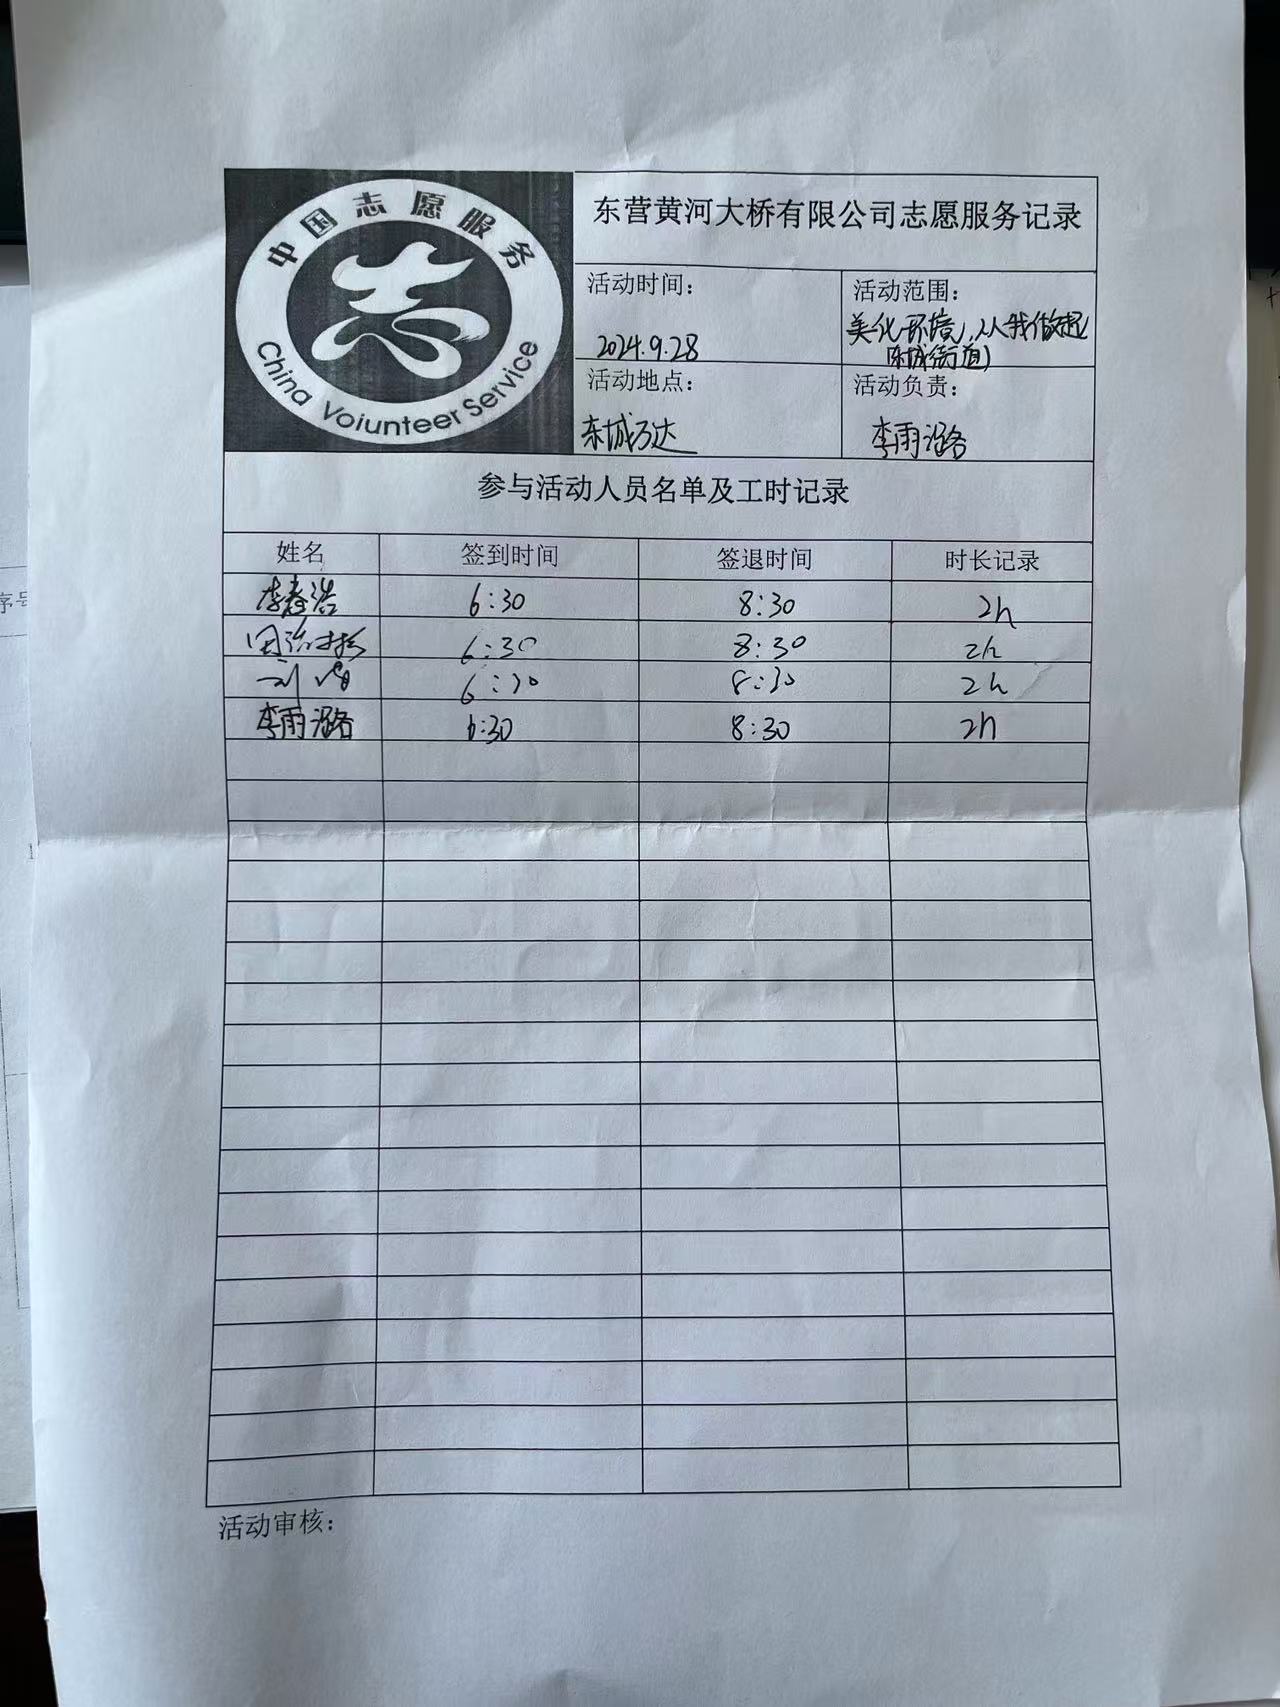 中国志愿服务
China Voiunteer Service
东营黄河大桥有限公司志愿服务记录
活动时间：
2024.9.28
活动范围：
美化环境，从我做起
东城街道
活动地点：
东城万达
活动负责：
李雨潞
参与活动人员名单及工时记录
姓名 签到时间 签退时间 时长记录
李春浩 6:30 8:30 2h
6:30 8:30 2h
刘 6:30 8:30 2h
李雨潞 6:30 8:30 2h
活动审核：
序号